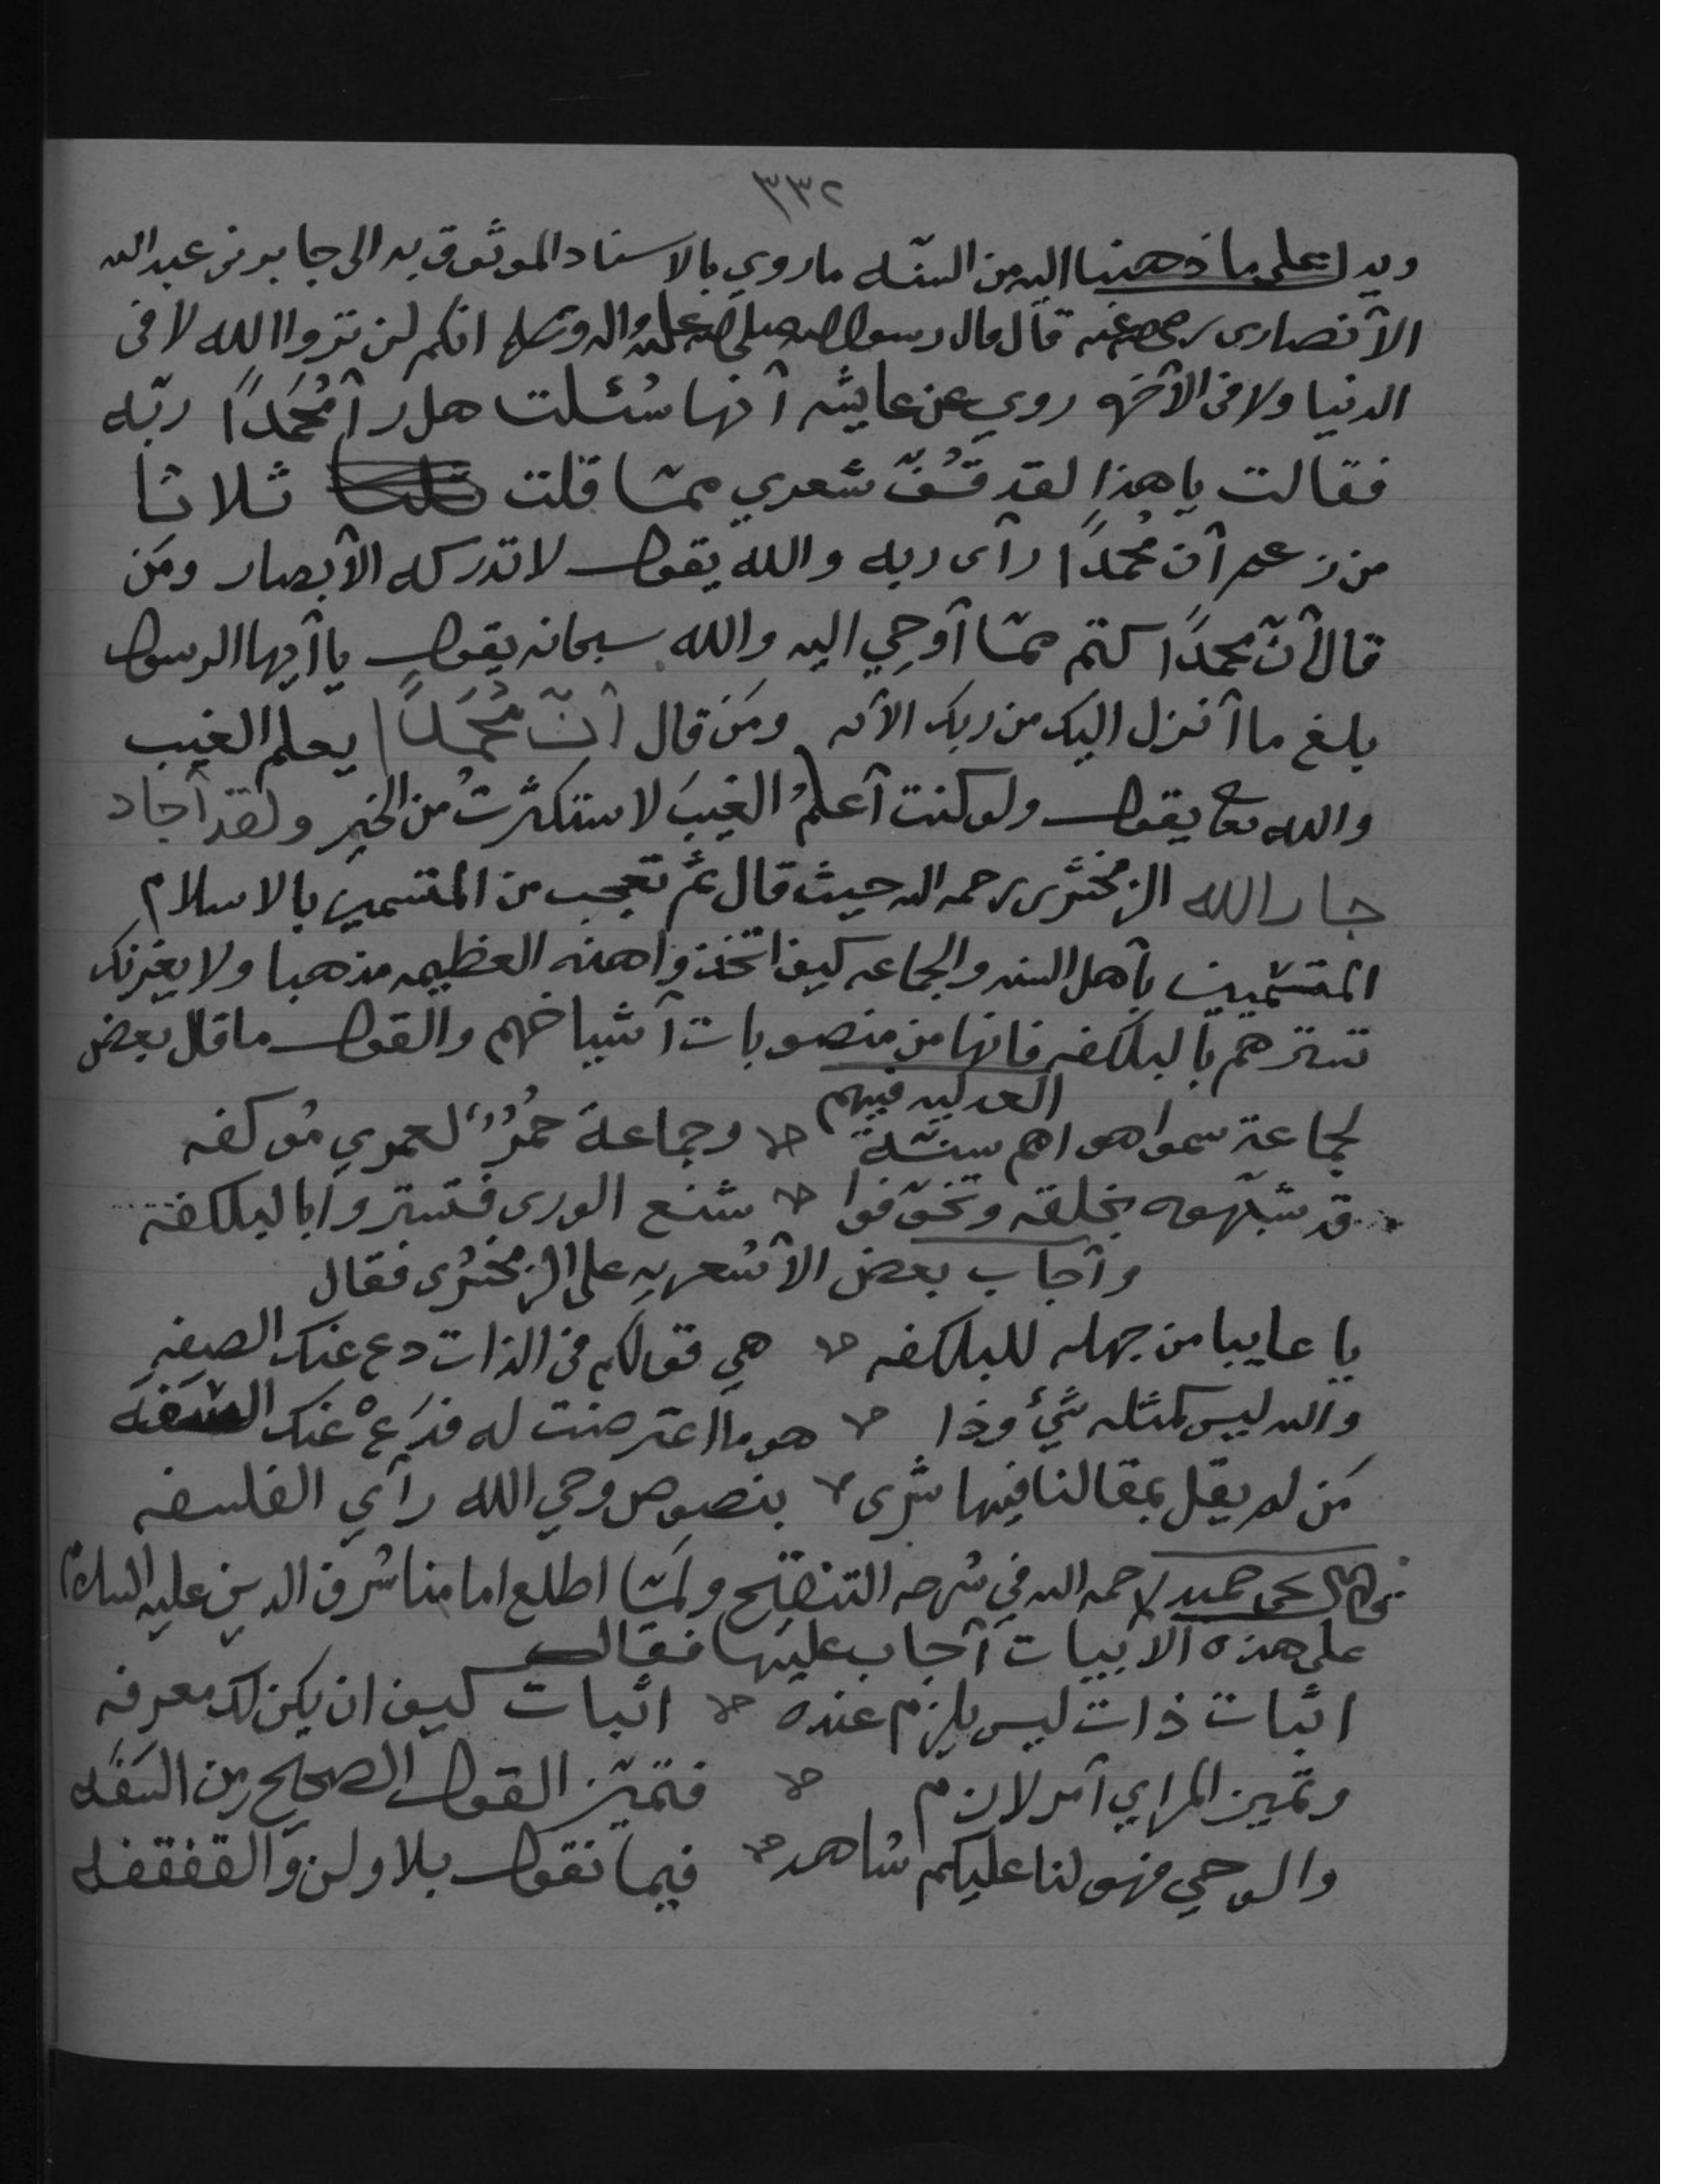 ٣٣٢
ويدل على ما ذهبنا اليه من السنه ما روي بالاسناد الموثوق به الى جابر بن عبد الله
الأنصارى رضي الله عنه قال قال رسول الله صلى الله عليه واله وسلم انكم لن تروا الله لا فى
الدنيا ولا في الآخره روي عن عايشه أنها سُئلت هل رأ مُحَمدًا ربّه
فقالت يا هذا لقد قَفّ شعري ممّا قلت ثلاثا
من زعم أن مُحمدًا رآى ربه والله يقول لا تدركه الأبصار ومَن
قال أنّ محمدًا كتم ممّا أوحِي اليه والله سبحانه يقول يا أيها الرسول
بلغ ما أنزل اليك من ربك الآيه ومَن قال أنّ مُحَمدًا يعلم الغيب
والله تعا يقول ولو كنت أعلمُ الغيبَ لاستكثرتُ من الخير ولقد أجاد
جار الله الزمخشرى رحمه الله حيث قال ثم تعجب من المتسمين بالاسلام
المتسمّيين بأهل السنه والجماعه كيف اتخذوا هذه العظيمه مذهبا ولا يغرنك
تسترهم بالبلكفه فانها من منصوبات أشياخهم والقول ما قال بعض
العدليه فيهم
لجماعة سموا هواهم سنّـةً وجماعةَ حُمُرٌ لعمري مُوكفه
قد شبّهوه بخلقه وتخوّفوا شنع الورى فتستروا بالبلكفه
وأجاب بعض الأشعريه على الزمخشرى فقال
يا عايبا من جهله للبلكفه هي قولكم في الذات دع عنك الصفه
والله ليس كمثله شيءٌ وذا هو ما اعترضت له فدَعْ عنك السَّفَه
مَن لم يقل بمقالنا فيها شرى بنصوص وحي الله رآي الفلسفه
قال يحي حميد رحمه الله في شرحه التنقيح ولمّا اطلع امامنا شرف الدين عليه السلام
على هذه الأبيات أجاب عليها فقال
اثبات ذات ليس يلزم عنده اثبات كيف ان يكن لك معرفه
وتميز المراي أمر لازم فتميّز القول الصحيح من السَفَه
والوحي فهو لنا عليكم شاهد فيما نقول بلا ولن والقفقفه